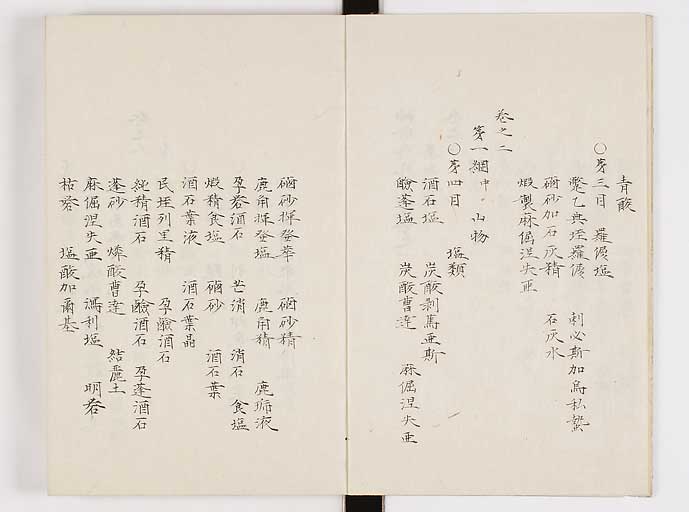 青酸
〇第三目　羅傷塩
鼈乙典垤羅傷　刺必斯加烏私蟄
硇砂加石灰精　石灰水
煅製麻倔涅失亜
巻之二
第一綱中　山物
〇第四目　塩類
酒石塩　炭酸剥篤亜斯
鹸蓬塩　炭酸曹達　麻倔涅失亜
硇砂揮発華　硇砂精
鹿角揮発塩　鹿角精　鹿琥液
孕礬酒石　芒消　消石　食塩
煅精食塩　硇砂　酒石葉
酒石葉液　酒石葉晶
民垤列里精　孕鹸酒石
純精酒石　孕鹸酒石　孕蓬酒石
蓬砂　燐酸曹達　結麗土
麻倔涅失亜　瑪利塩　明礬
枯礬　塩酸加爾基